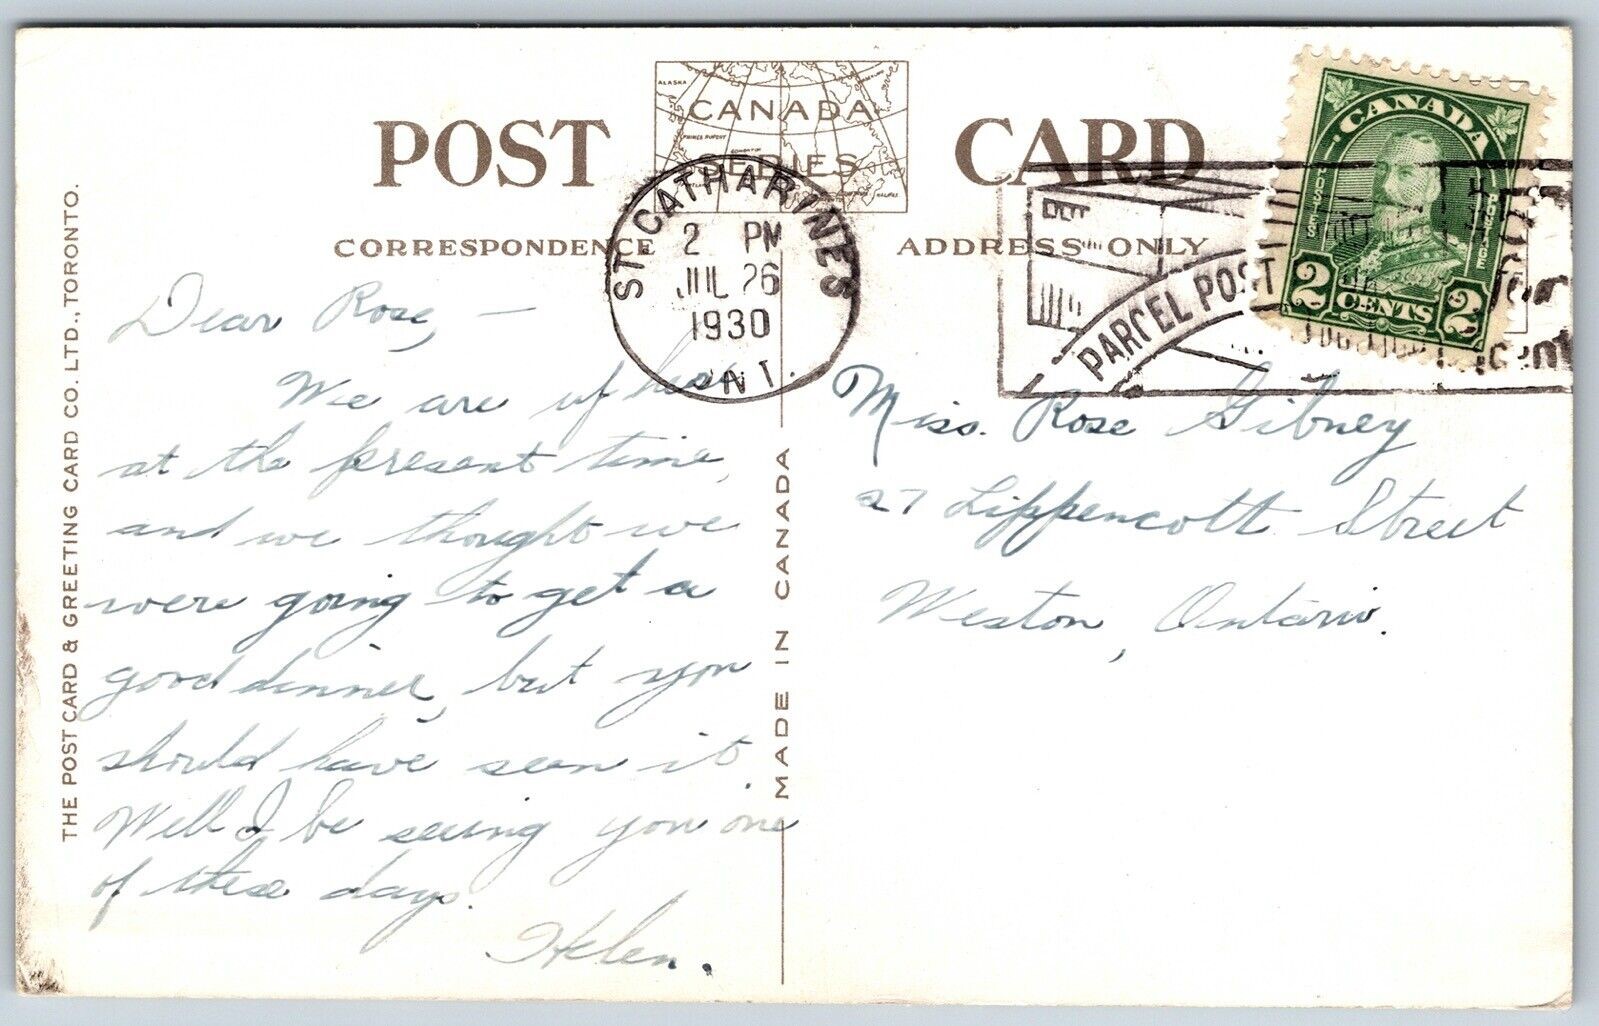 POST CARD
CANADA
SERIES
ALASKA
CORRESPONDENCE
ADDRESS ONLY
ST. CATHARINES
2 PM
JUL 26
1930
ONT.
PARCEL POST
CANADA
POSTES
POSTAGE
2 CENTS 2
Dear Rose, —
We are up here
at the present time,
and we thought we
were going to get a
good dinner, but you
should have seen it.
Well I be seeing you one
of these days.
Helen.
Miss. Rose Gibney
27 Lippencott Street
Weston, Ontario.
MADE IN CANADA
THE POST CARD & GREETING CARD CO. LTD., TORONTO.